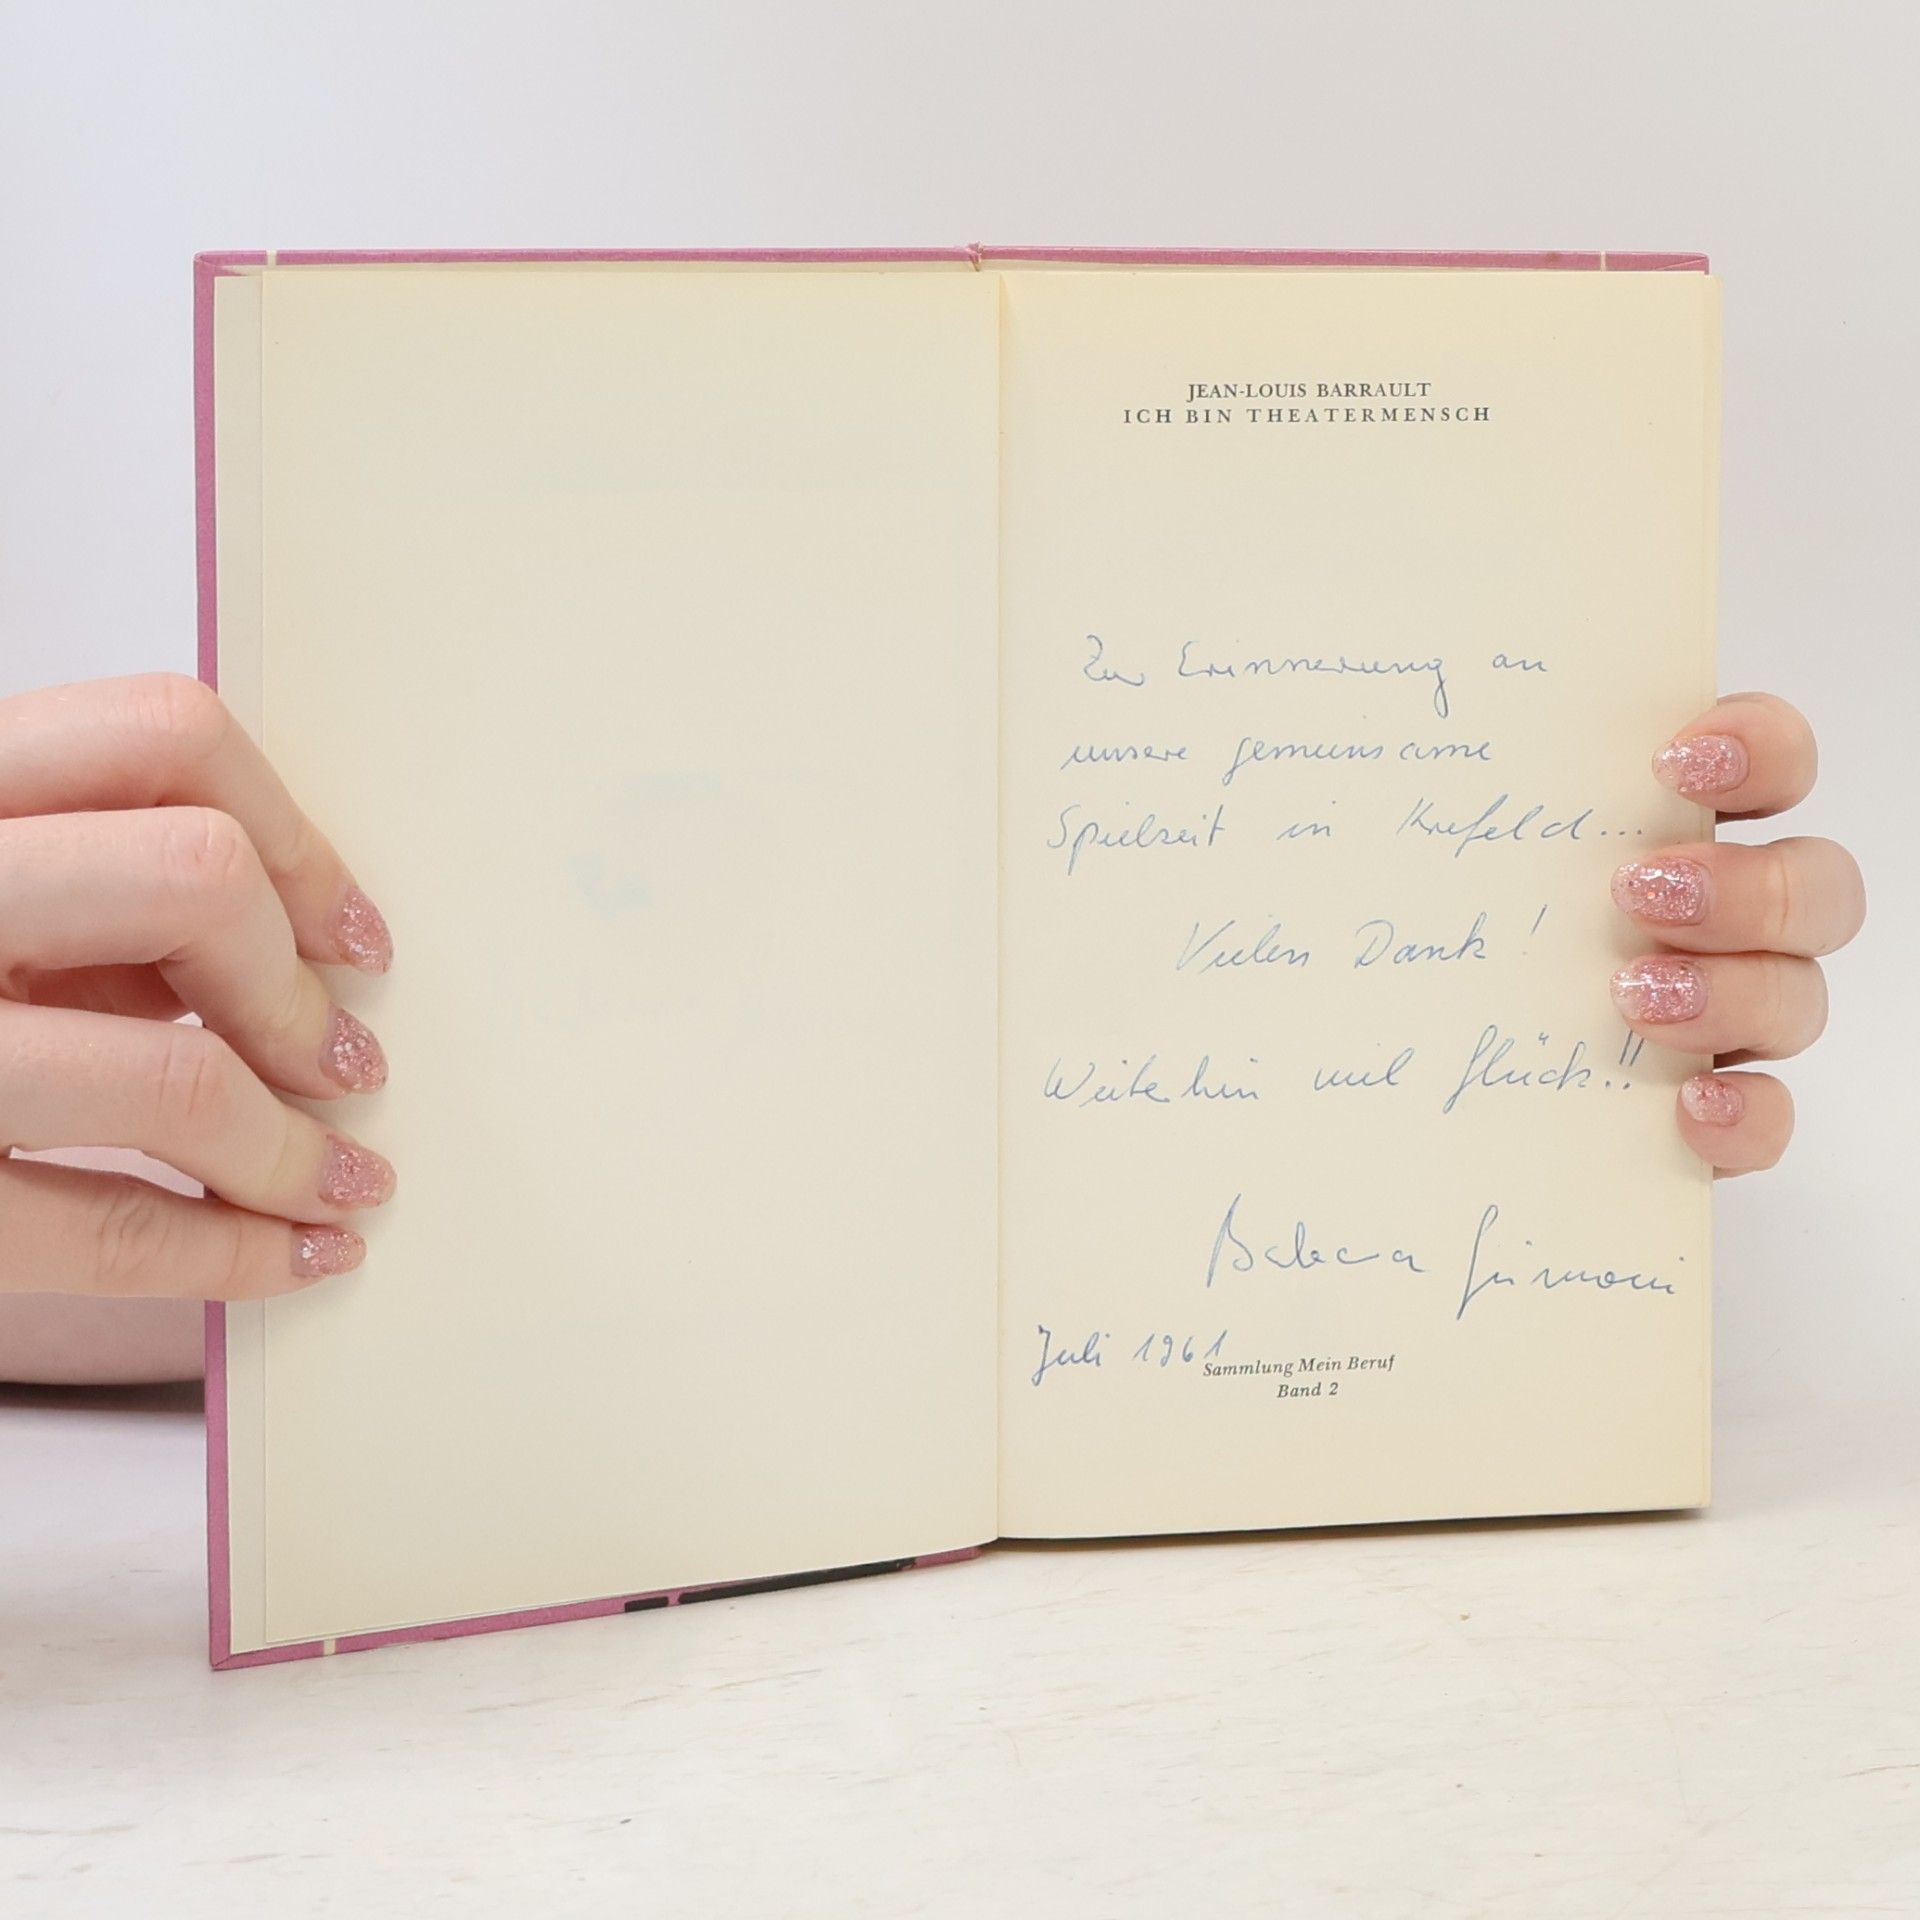 JEAN-LOUIS BARRAULT
ICH BIN THEATERMENSCH
Zur Erinnerung an
unsere gemeinsame
Spielzeit in Krefeld...
Vielen Dank!
Weiterhin viel Glück!!
Barbara
Juli 1961
Sammlung Mein Beruf
Band 2